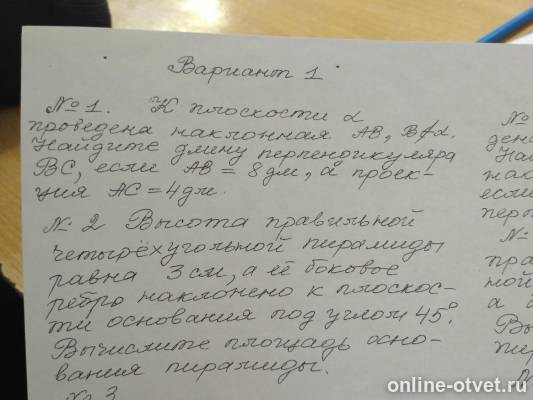 Вариант 1
№1. К плоскости α
проведена наклонная АВ, В∉α.
Найдите длину перпендикуляра
ВС, если АВ = 8дм, а проек-
ция АС = 4дм.
№ 2 Высота правильной
четырёхугольной пирамиды
равна 3 см, а её боковое
ребро наклонено к плоскос-
ти основания под углом 45°.
Вычислите площадь осно-
вания пирамиды.
№3
№
ден
Най
нак
если
пер
№
пра
ной
а
Вы
online-otvet.ru